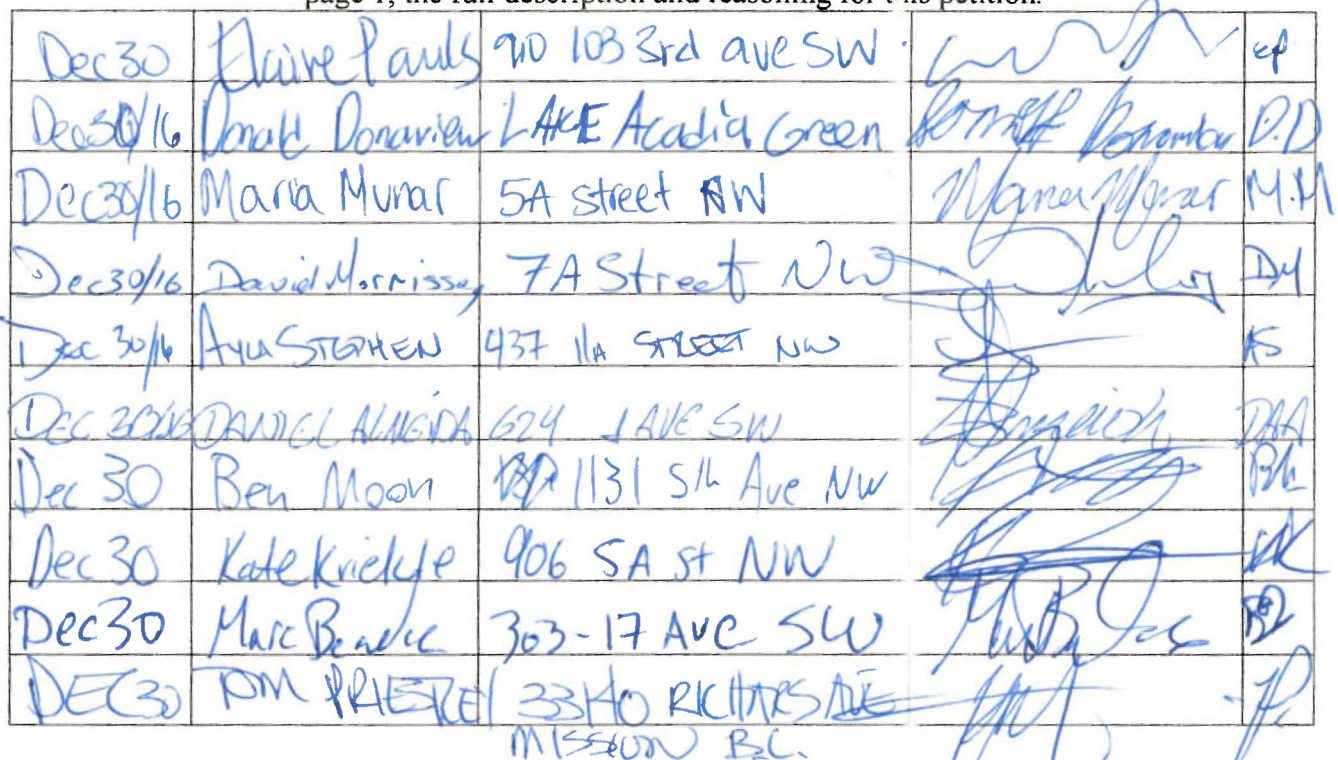 page 1, the full description and reasoning for this petition.
Dec 30 Elaine Pauls 910 103 3rd ave SW EP
Dec 30/16 Donald Donaview LAKE Acadia Green D.D
Dec 30/16 Maria Munar 5A street NW Maria Munar M.M
Dec 30/16 David Morrissey 7A Street NW DM
Dec 30/16 STEPHEN 437 11A STREET NW AS
DEC 30/16 DANIEL ALMEIDA 624 1 AVE SW Almeida DAA
Dec 30 Ben Moon 1131 5th Ave NW BM
Dec 30 Kate 906 5A St NW KK
Dec 30 Marc 303-17 AVE SW
DEC 30 TOM PRIESTLEY 33140 RICHARDS AVE
MISSION B.C.